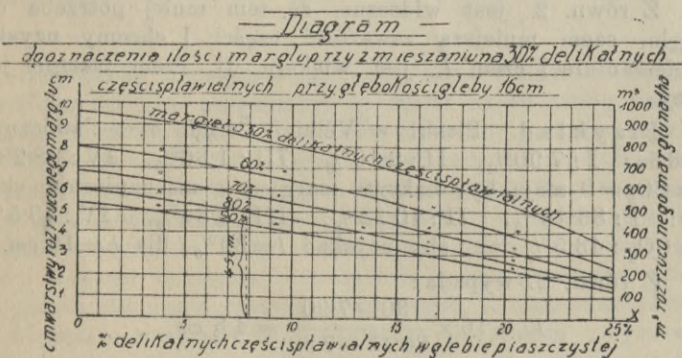 Diagram
dpoznaczenia ilości marglu przy zmieszaniu na 30% delikatnych
części spławialnych przy głębokości gleby 16cm
cm
10
9
8
7
6
5
4
3
2
1
cm warstwy rozrzuconego marglu
margiel o 30% delikatnych części spławialnych
60%
70%
80%
90%
4.5cm.
m³
1000
900
800
700
600
500
400
300
200
100
X
m³ rozrzuconego marglu na ha
0
5
10
15
20
25%
% delikatnych części spławialnych w glebie piaszczystej